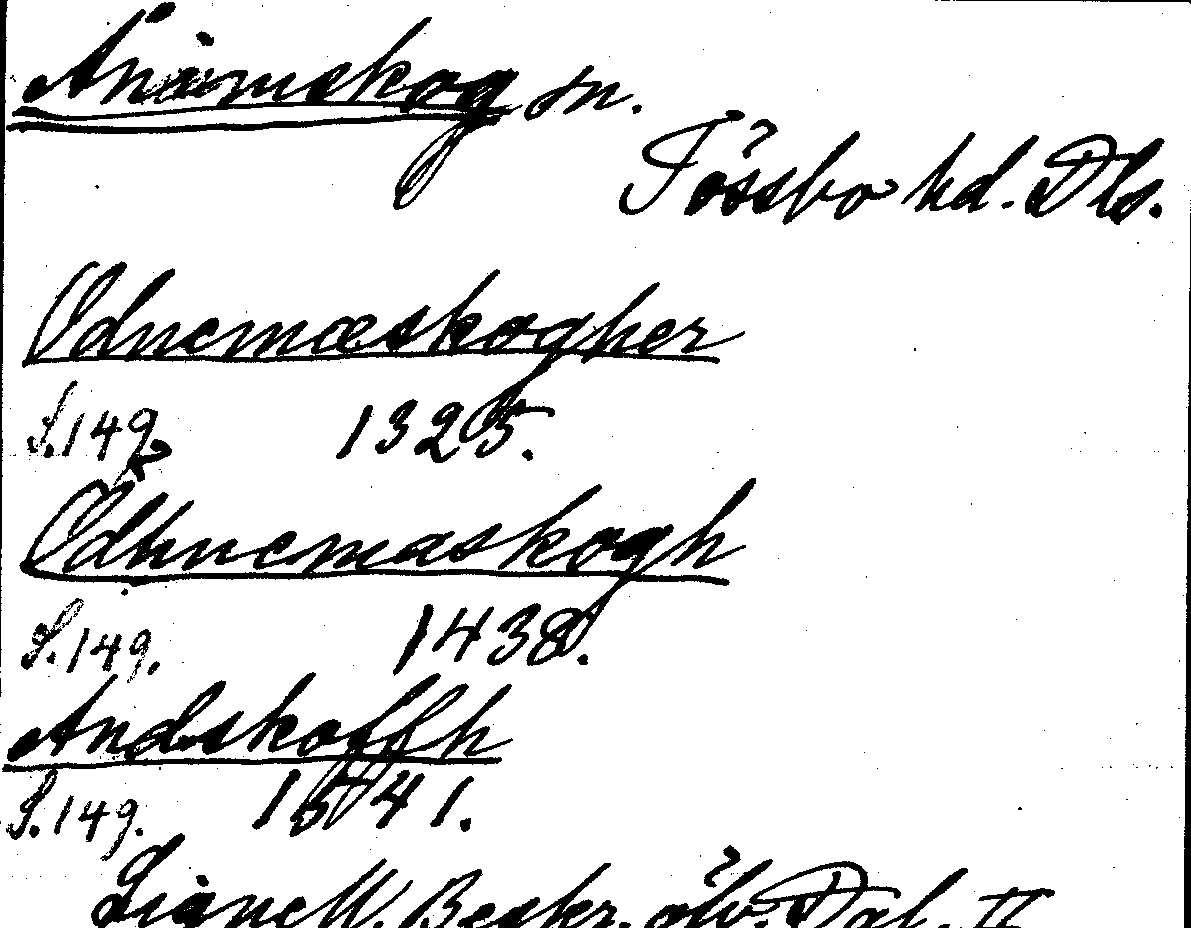 Ånimskog sn.
Tössbo hd. Dls.
Odnemæskogher
S. 149. 1325.
Odhnemaskogh
S. 149. 1438.
Andskoffh
S. 149. 1541.
Lignell. Beskr. öfv. Dal. II